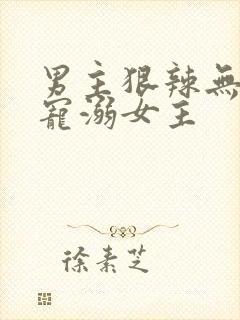 男主狠辣無
寵溺女主
徐素芝